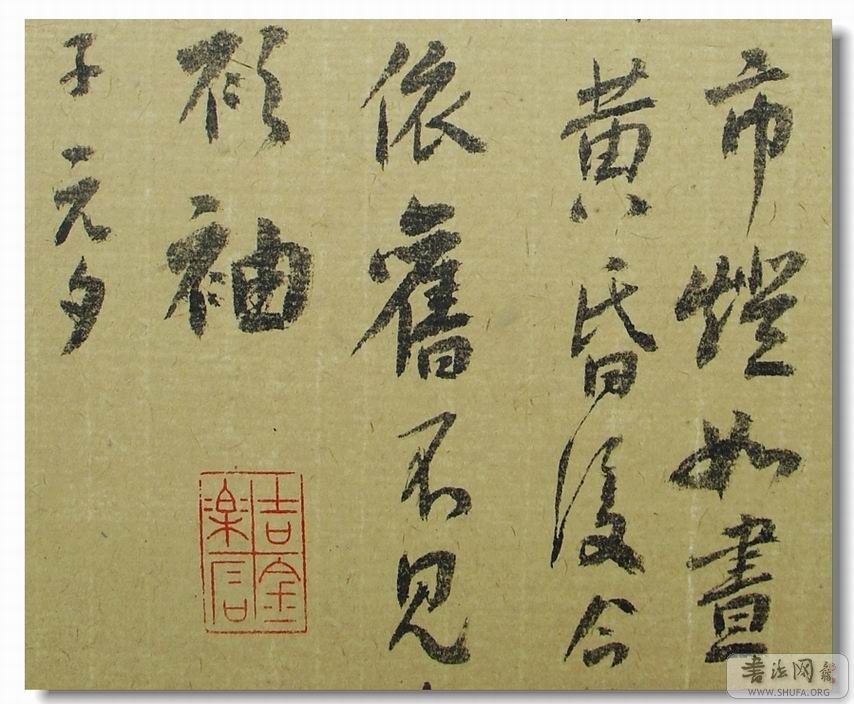 市燈如晝
黄昏後今
依舊不見
袖
子元夕
吉金
楽
书法网
WWW.SHUFA.ORG